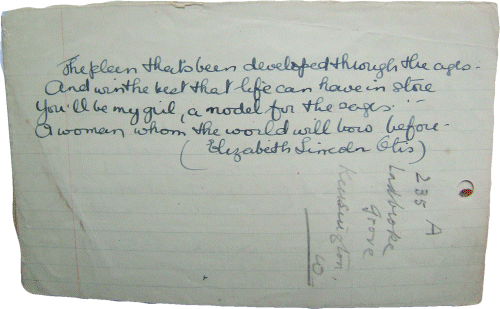 The plan that's been developed through the ages -
And win the best that life can have in store
You'll be my girl, a model for the sages -
A woman whom the world will bow before -
(Elizabeth Lincoln Otis)
235 A
Ladbroke
Grove
Kensington,